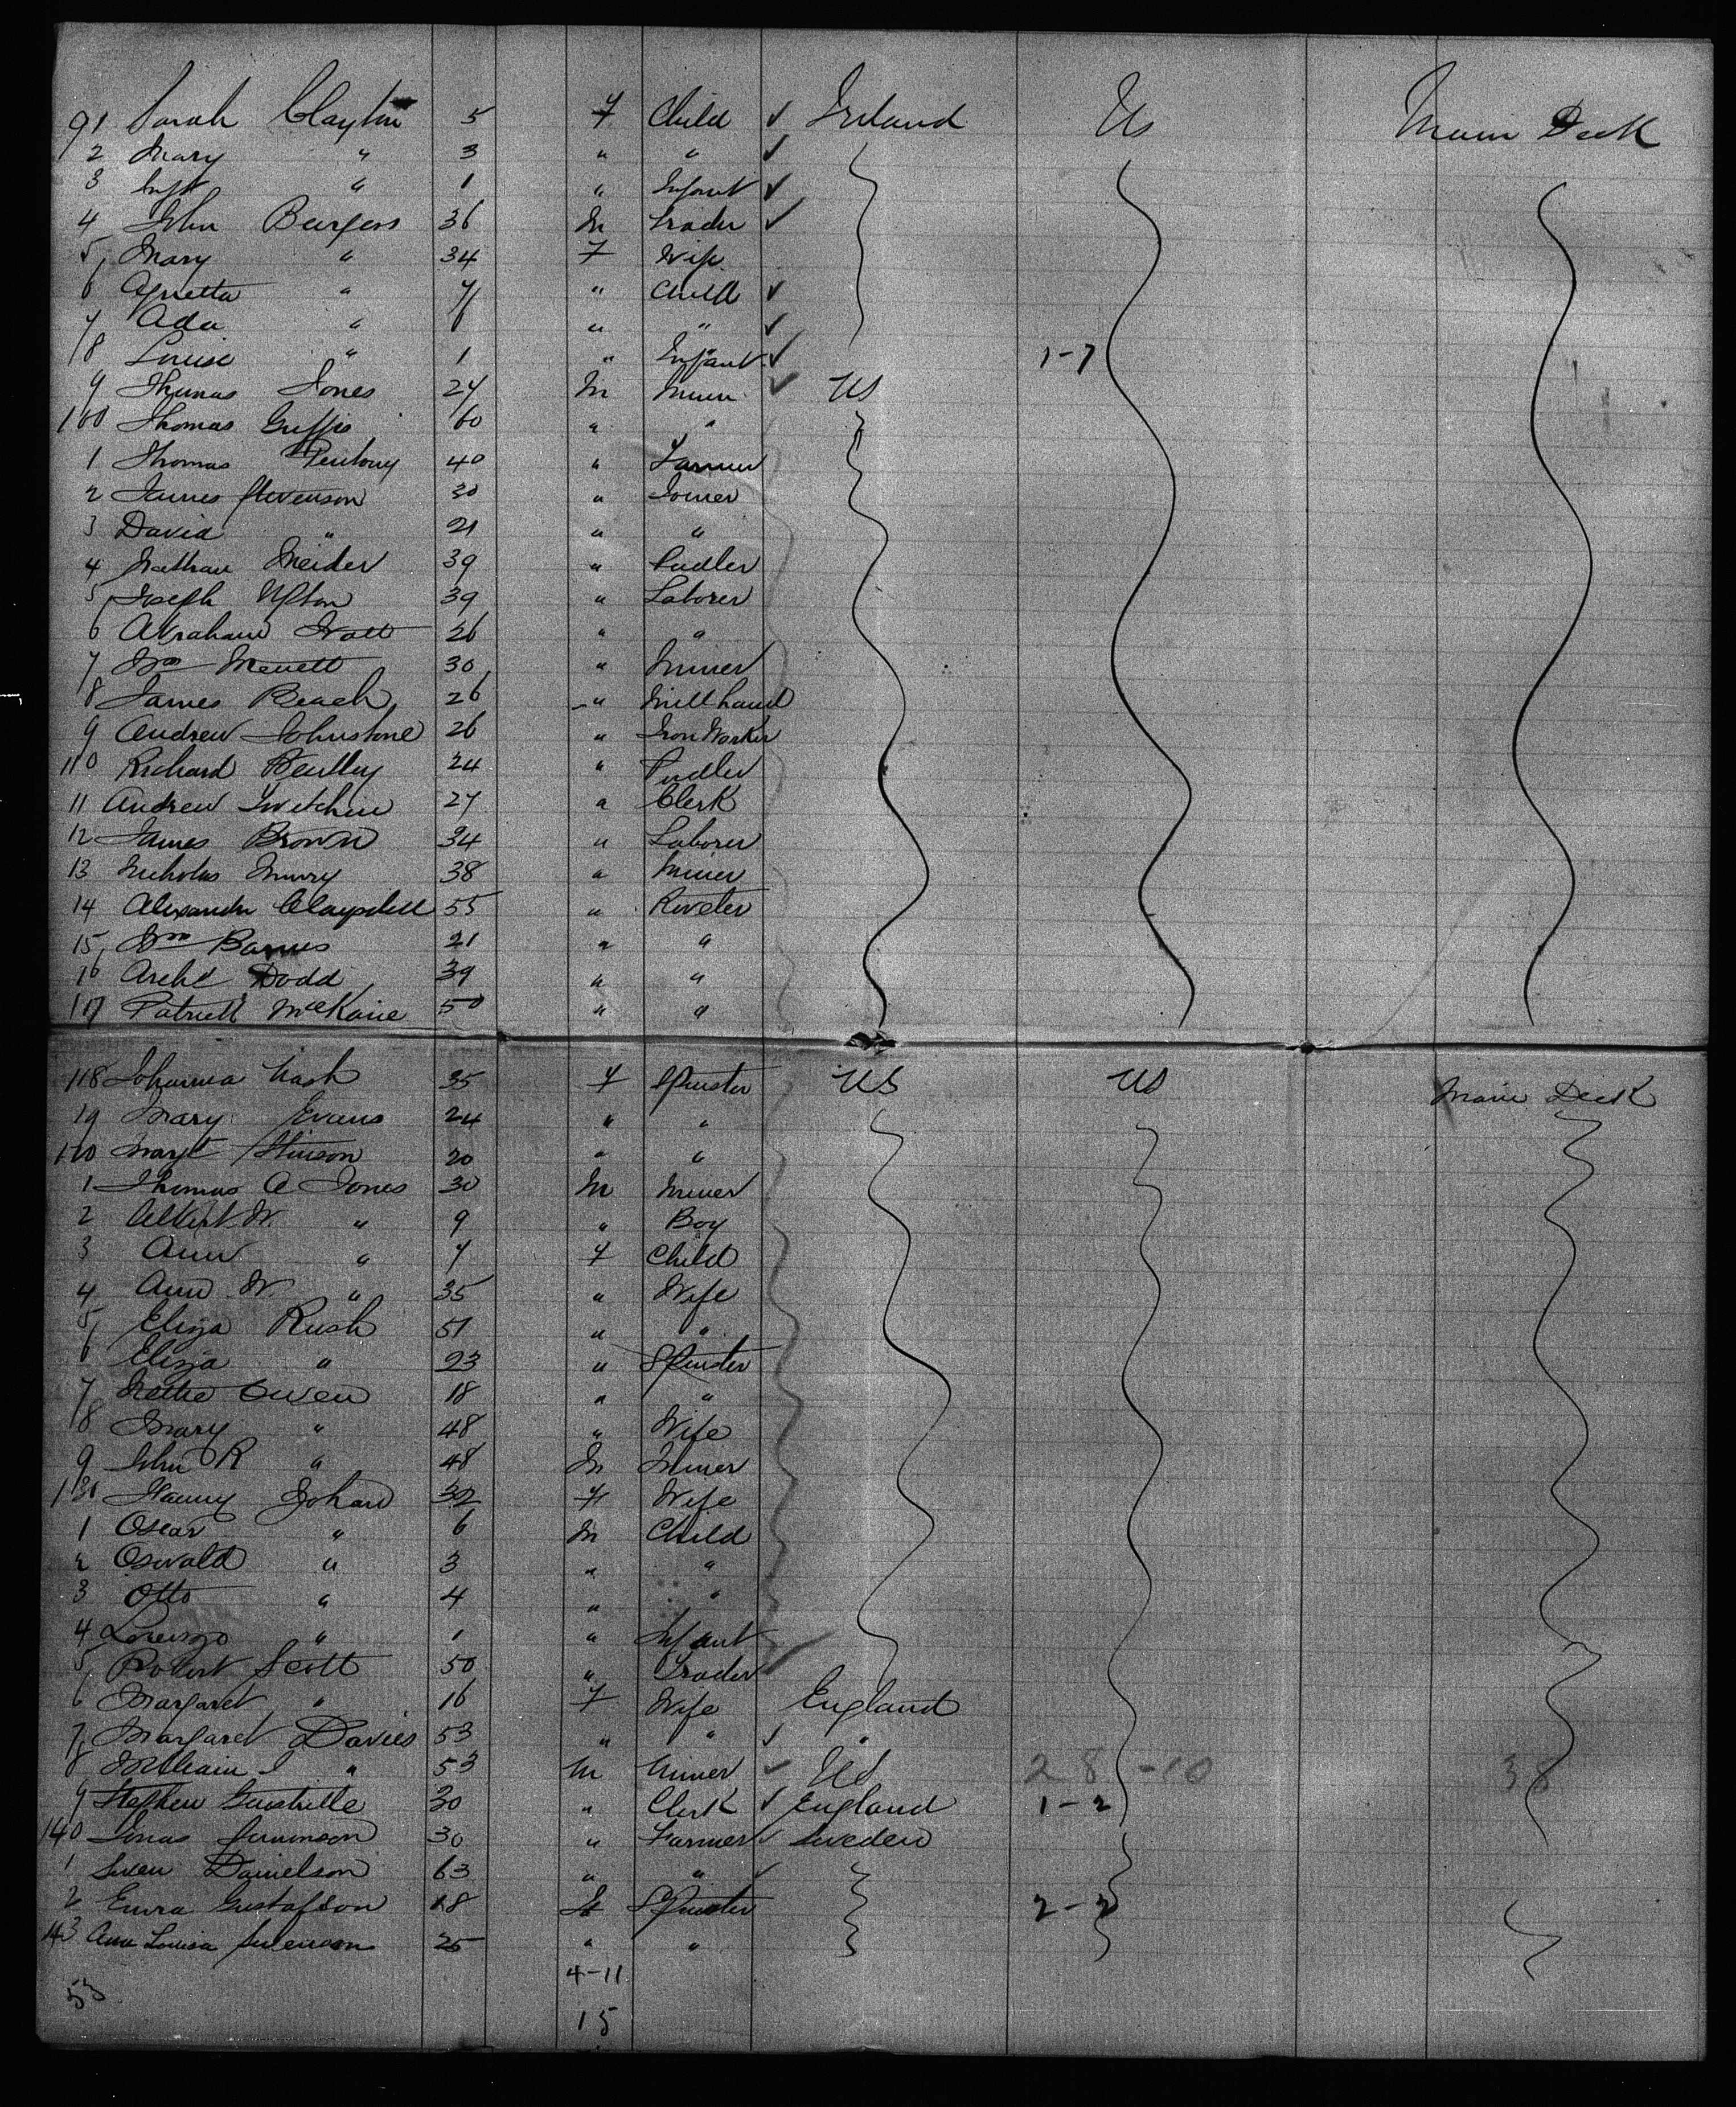 91 Sarah Clayton 5 F Child ✓ Ireland Us Main Deck
2 Mary " 3 " " ✓
3 Inft " 1 " Infant ✓
4 John Burgess 36 M Trader ✓
5 Mary " 34 F Wife
6 " " Child ✓
7 Ada " 6 " " ✓
98 Louise " 1 " Infant ✓ 1-7
9 Thomas Jones 27 M Miner ✓ US
100 Thomas 60 " "
1 Thomas 40 " Farmer
2 James Stevenson 30 " Joiner
3 David " 21 " "
4 39 " Pudler
5 Joseph Upton 39 " Laborer
6 Abraham 26 " "
7 Wm 30 " Miner
8 James Beach 26 " Millhand
9 Andrew Johnstone 26 " Iron Worker
110 Richard 24 " Pudler
11 Andrew 27 " Clerk
12 James Brown 34 " Laborer
13 Nicholas 38 " Miner
14 Alexander 55 " Riveter
15 Wm Barnes 21 " "
16 Archd Dodd 39 " "
117 Patrick McKane 50 " "
118 Johanna Nash 35 F Spinster US US Main Deck
19 Mary Evans 24 " "
120 Margt Stinson 20 " "
1 Thomas A Jones 30 M Miner
2 Albert W. " 9 " Boy
3 Ann " 7 F Child
4 Ann W. " 35 " Wife
5 Eliza Rush 51 " "
6 Eliza " 23 " Spinster
7 Owen 18 " "
8 Mary " 48 " Wife
9 John R " 48 M Miner
130 Johan 32 F Wife
1 Oscar " 6 M Child
2 Oswald " 3 " "
3 Otto " 4 " "
4 Lorenzo " 1 " Infant
5 Robert Scott 50 " Trader
6 Margaret " 16 F Wife England
7 Margaret Davies 53 " " ✓ "
8 William J " 53 M Miner ✓ US 28-10 38
9 Stephen 30 " Clerk ✓ England 1-2
140 Jonas 30 " Farmer ✓ Sweden
1 Swen Danielson 63 " " ✓
2 Emra Gustafson 18 F Spinster 2-2
143 Ann Louisa 25 " "
4-11
53
15